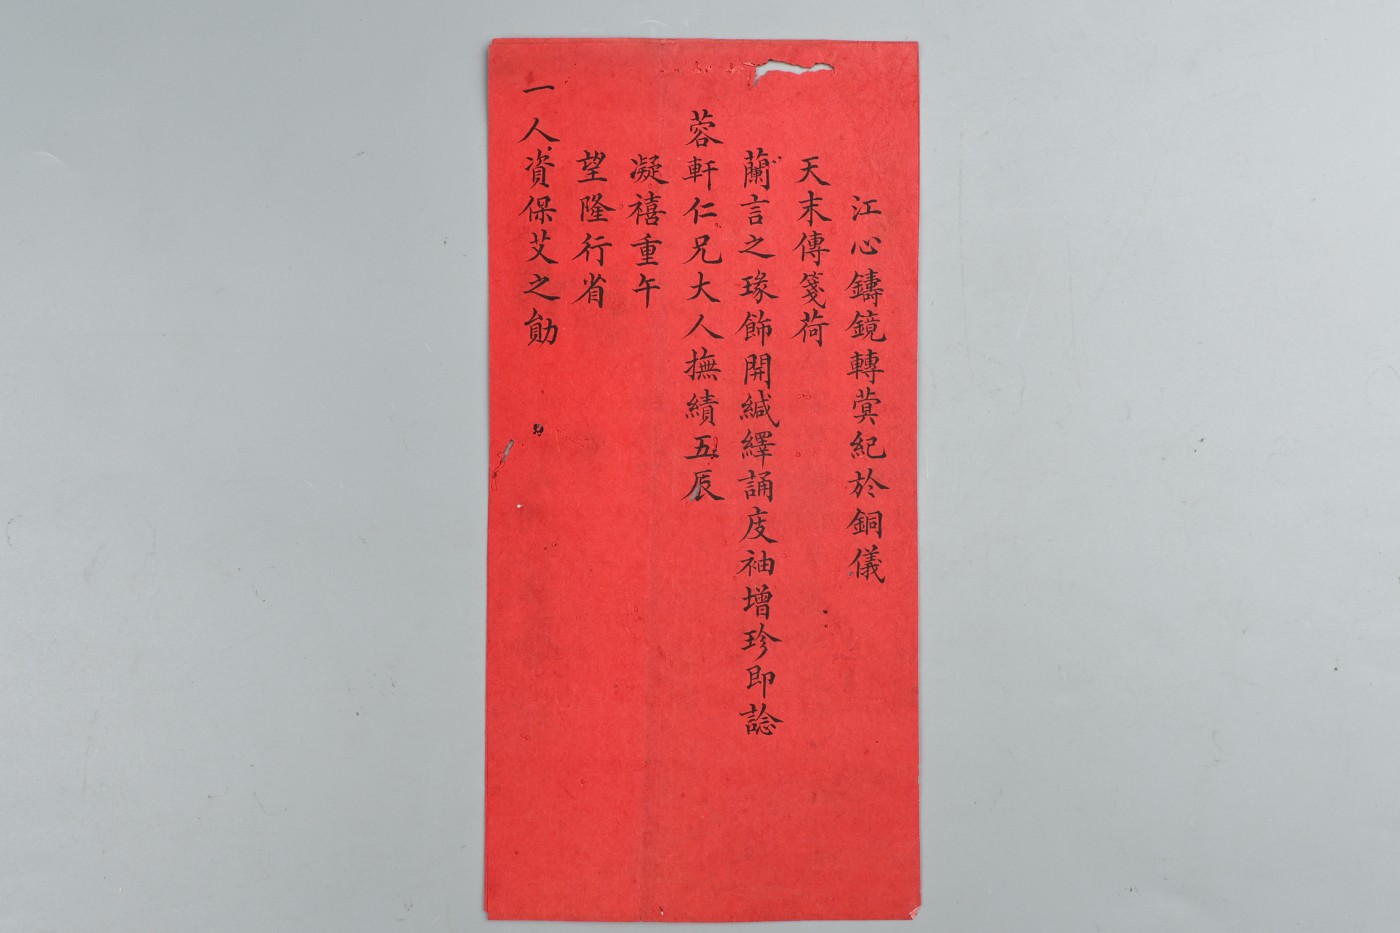 江心鑄鏡轉蓂紀於銅儀
天末傳箋荷
蘭言之瑑飾開緘繹誦庋袖增珍即諗
蓉軒仁兄大人撫績五辰
凝禧重午
望隆行省
一人資保艾之勛